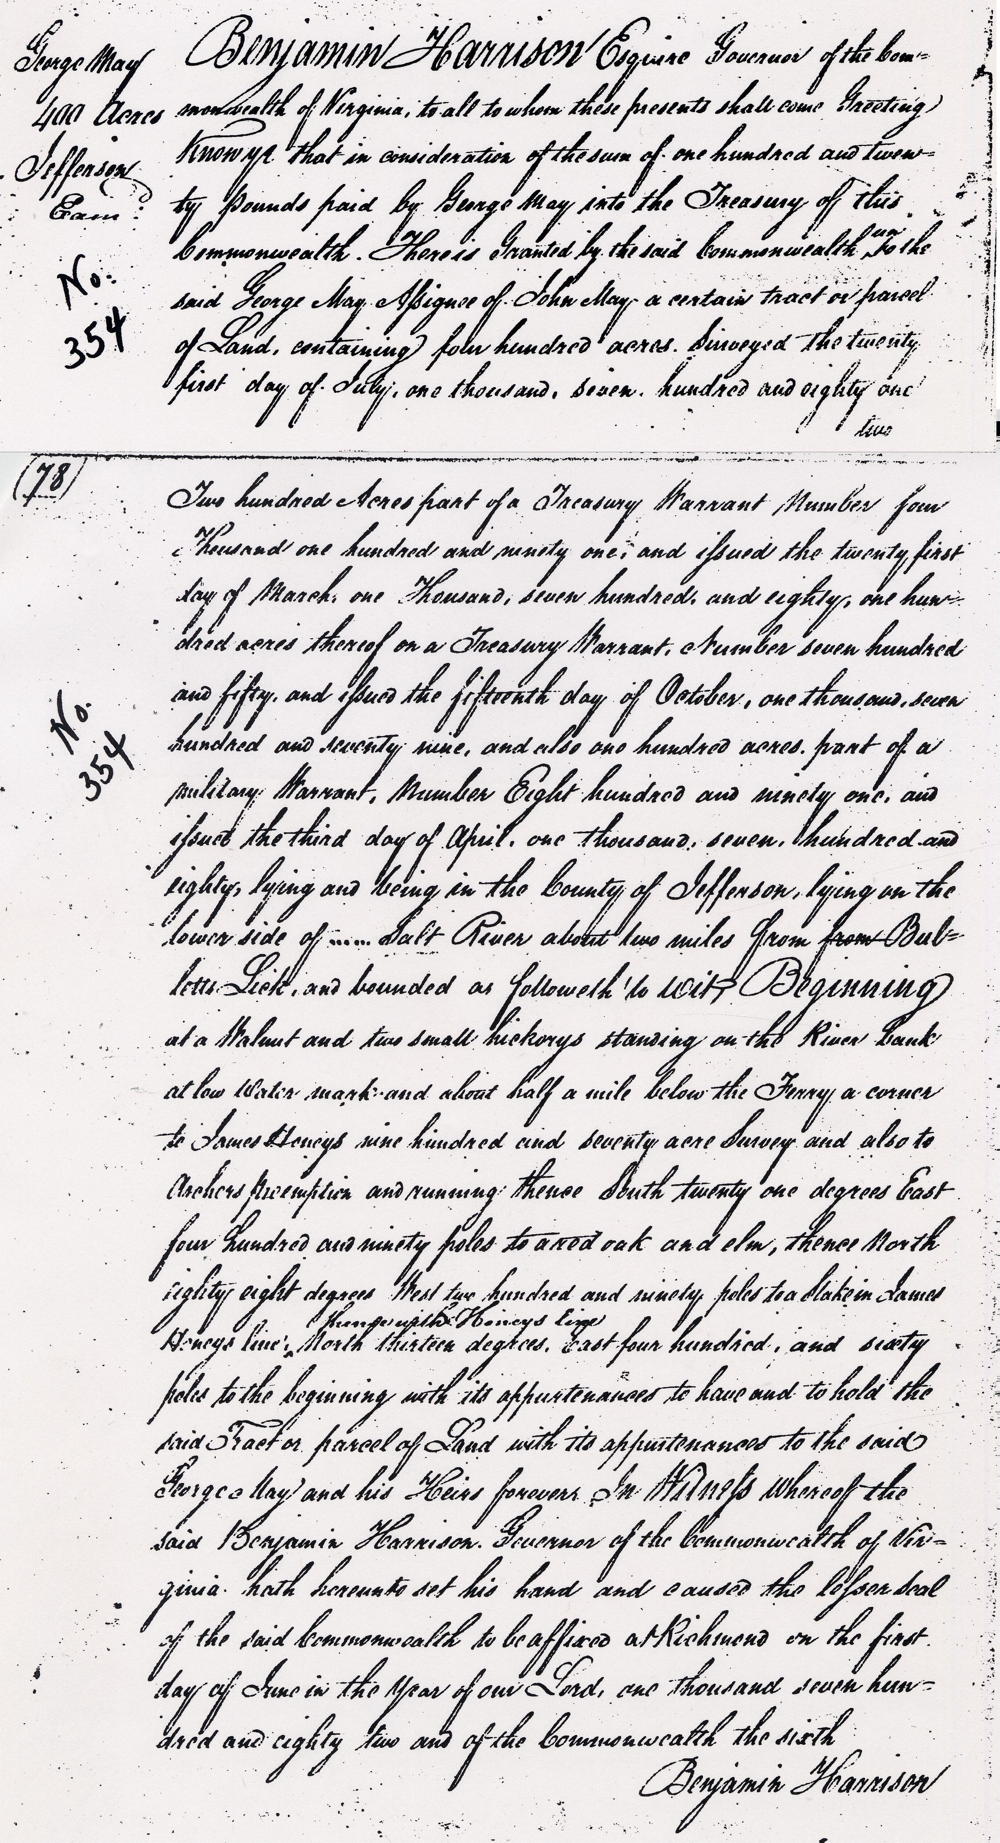 George May
400 Acres
Jefferson
Exam.d
No:
354
Benjamin Harrison Esquire Governor of the Com=
monwealth of Virginia, to all to whom these presents shall come Greeting
Know ye that in consideration of the sum of one hundred and twen=
ty pounds paid by George May into the Treasury of this
Commonwealth. There is Granted by the said Commonwealth unto the
said George May Assignee of John May a certain tract or parcel
of Land, containing four hundred acres. Surveyed the twenty
first day of July, one thousand, seven. hundred and eighty one
two
(78)
No.
354
Two hundred Acres part of a Treasury Warrant Number four
Thousand one hundred and ninety one; and issued the twenty first
day of March, one Thousand, seven hundred, and eighty, one hun=
dred acres thereof on a Treasury Warrant, Number seven hundred
and fifty, and issued the fifteenth day of October, one thousand, seven
hundred and seventy nine, and also one hundred acres. part of a
military Warrant, Number Eight hundred and ninety one, and
issued the third day of April, one thousand, seven, hundred and
eighty, lying and being in the County of Jefferson, lying on the
lower side of ...... Salt River about two miles from from Bul=
letts Lick, and bounded as followeth to wit, Beginning
at a Walnut and two small hickorys standing on the River bank
at low Water mark and about half a mile below the Ferry a corner
to James Honeys nine hundred and seventy acre Survey and also to
Archers Preemption and running thence South twenty one degrees East
four hundred and ninety poles to a red oak and elm, thence North
eighty eight degrees West two hundred and ninety poles to a Stake in James
thence with Honeys line
Honeys line, North thirteen degrees, East four hundred, and sixty
poles to the beginning with its appurtenances to have and to hold the
said Tract or parcel of Land with its appurtenances to the said
George May and his Heirs forever. In Witness whereof the
said Benjamin Harrison. Governor of the Commonwealth of Vir=
ginia. hath hereunto set his hand and caused the lesser Seal
of the said Commonwealth to be affixed at Richmond on the first
day of June in the Year of our Lord, one thousand seven hun=
dred and eighty two and of the Commonwealth the sixth
Benjamin Harrison